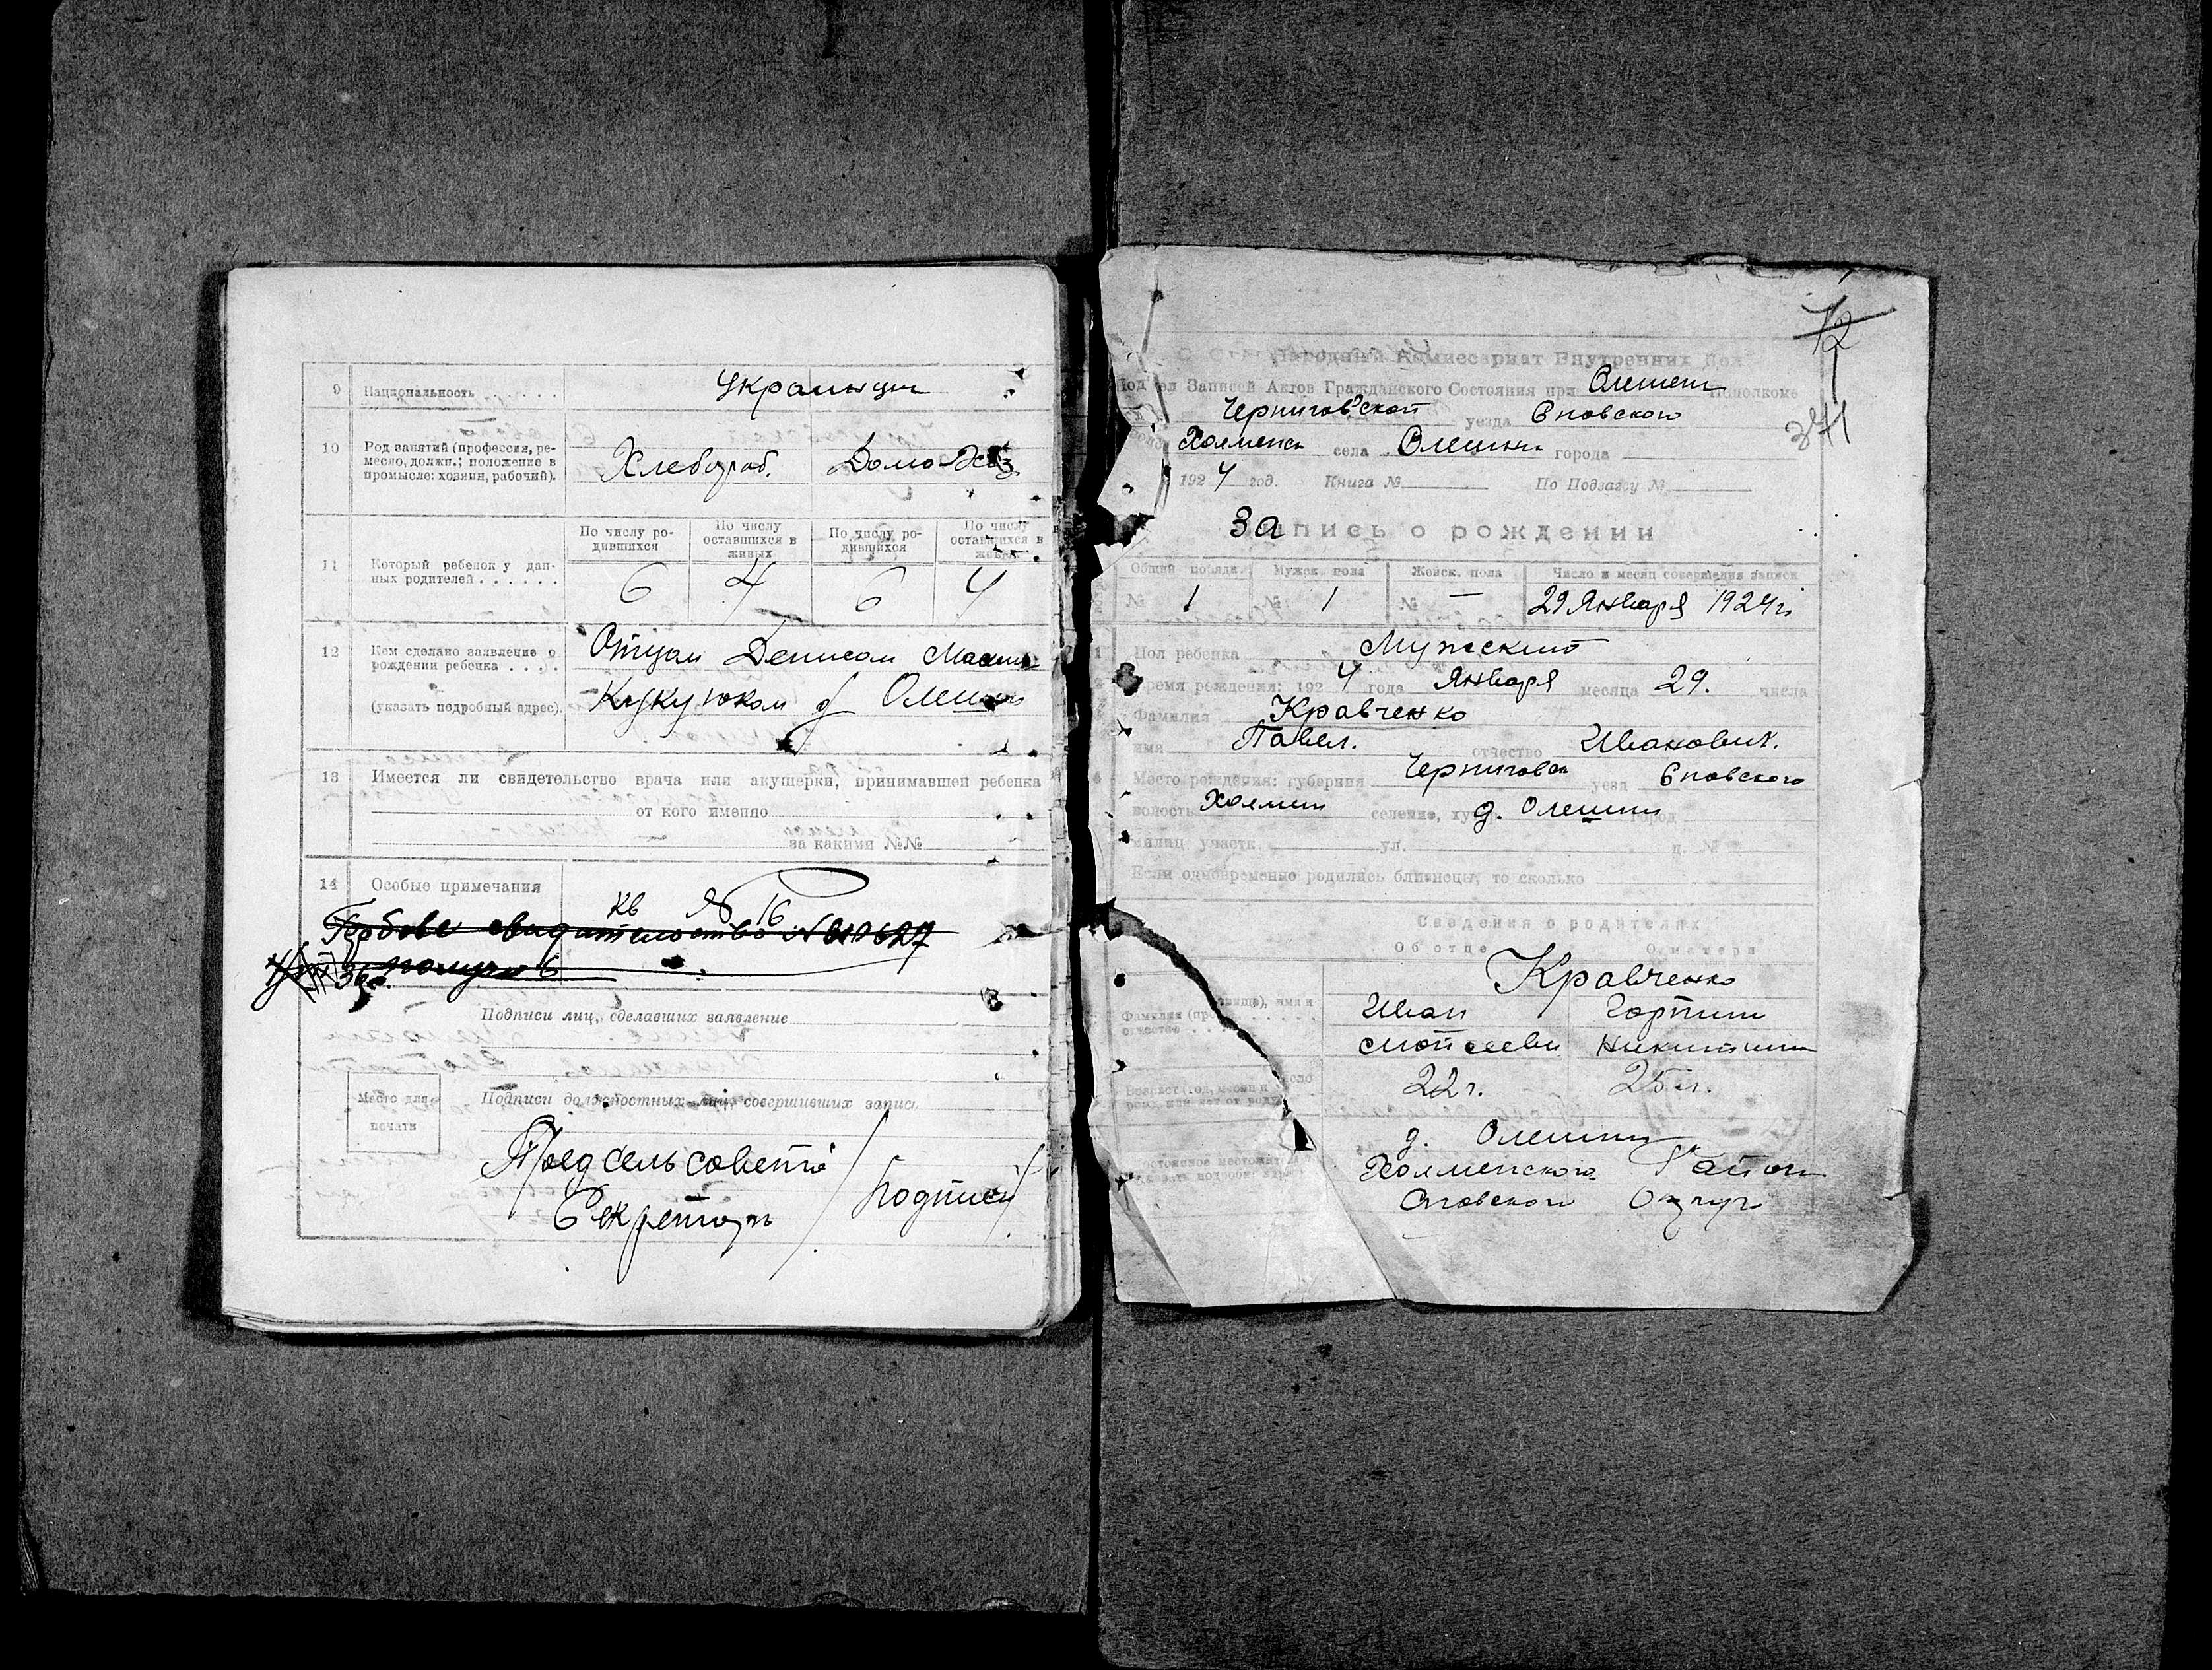 9 Национальность . . . . . Украинцы
10 Род занятий (профессия, ре-
месло, должн.; положение в
промысле: хозяин, рабочий).
Хлебораб. Домо-Хоз.
По числу ро-
дившихся
По числу
оставшихся в
живых
По числу ро-
дившихся
По числу
оставшихся в
живых
11 Который ребенок у дан-
ных родителей . . . . . .
6 4 6 4
12 Кем сделано заявление о
рождении ребенка . . . .
(указать подробный адрес).
Отцом Денисом
13 Имеется ли свидетельство врача или акушерки, принимавшей ребенка
от кого именно
за какими №№
14 Особые примечания
кв № 16
Гербове свидательство №
получив
Подписи лиц, сделавших заявление
Место для
печати
Подписи должностных лиц, совершивших запись
Предсельсовета
Секретарь
Подписи
12
341
Народный Комиссариат Внутренних Дел
Под'ел Записей Актов Гражданского Состояния при Олешен Исполкоме
Черниговской уезда Сновского
Холменск села Олешни города
1924 год. Книга № По Подзагсу №
Запись о рождении
Общий порядк. Мужск. пола Женск. пола Число и месяц совершения записи
№ 1 № 1 № — 29 Января 1924 г.
1 Пол ребенка Мужский
Время рождения: 1924 года Января месяца 29. числа
Фамилия Кравченко
имя Павел. отчество Иванович.
Место рождения: губерния Черниговск уезд Сновского
волость Холмен селение, ху д. Олешни город
милиц участк. ул. д. №
Если одновременно родились близнецы, то сколько
Сведения о родителях
Об отце О матери
Фамилия (пр звище), имя и
отчество . . .
Кравченко
Иван Горпини
Никитини
22 г. 25 л.
д. Олешни
Холменского Район
Сновского Округи